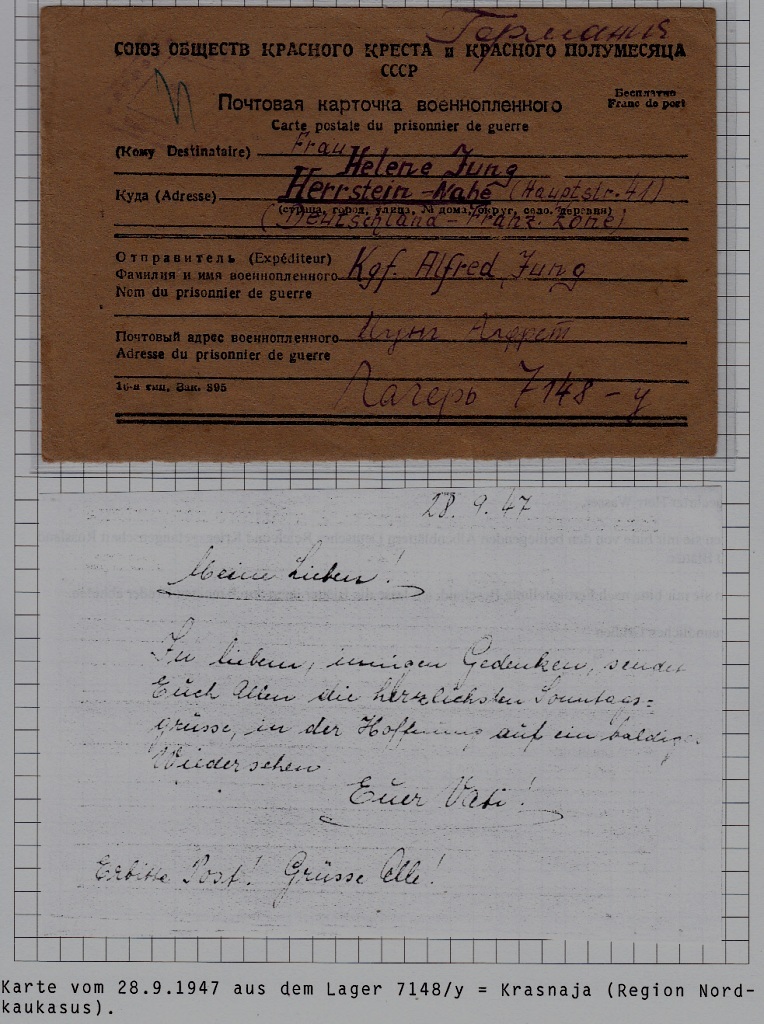 Германия
СОЮЗ ОБЩЕСТВ КРАСНОГО КРЕСТА и КРАСНОГО ПОЛУМЕСЯЦА
СССР
Бесплатно
Franc de port
Почтовая карточка военнопленного
Carte postale du prisonnier de guerre
(Кому Destinataire) Frau
Helene Jung
Куда (Adresse) Herrstein-Nahe (Hauptstr. 41)
(страна, город, улица, № дома, округ, село, деревня)
(Deutschland - Franz. Zone)
Отправитель (Expéditeur)
Фамилия и имя военнопленного Kgf. Alfred Jung
Nom du prisonnier de guerre
Почтовый адрес военнопленного Юнг Алфрет
Adresse du prisonnier de guerre
16-я тип. Зак. 895
Лагерь 7148-у
28.9.47
Meine Lieben!
In liebem, innigen Gedenken, sendet
Euch Allen die herzlichsten Sonntags=
grüsse, in der Hoffnung auf ein baldiges
Wiedersehen
Euer Vati!
Erbitte Post! Grüsse Alle!
Karte vom 28.9.1947 aus dem Lager 7148/y = Krasnaja (Region Nord-
kaukasus).